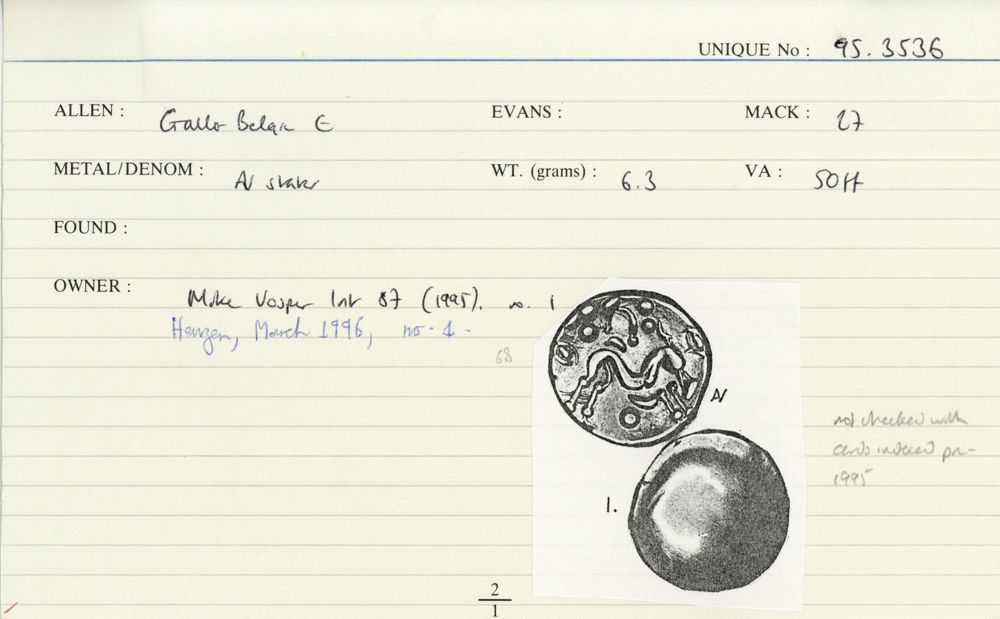 UNIQUE No : 95.3536
ALLEN : Gallo-Belgic E
EVANS :
MACK : 27
METAL/DENOM : AV stater
WT. (grams) : 6.3
VA : 50ff
FOUND :
OWNER : Mike Vosper 87 (1995). no. 1
March 1996, no. 1.
68
AV
1.
not checked with
cards indexed pre-
1995
2
1